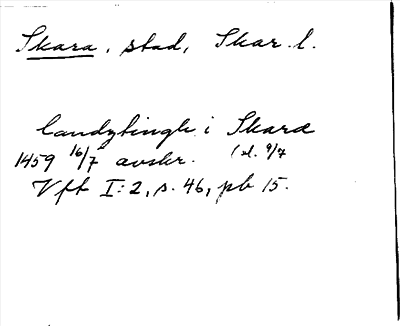 Skara, stad, Skar. l.
landztingh i Skara
1459 16/7 avskr. (sl. 9/7
Vft I:2, s. 46, pb 15.